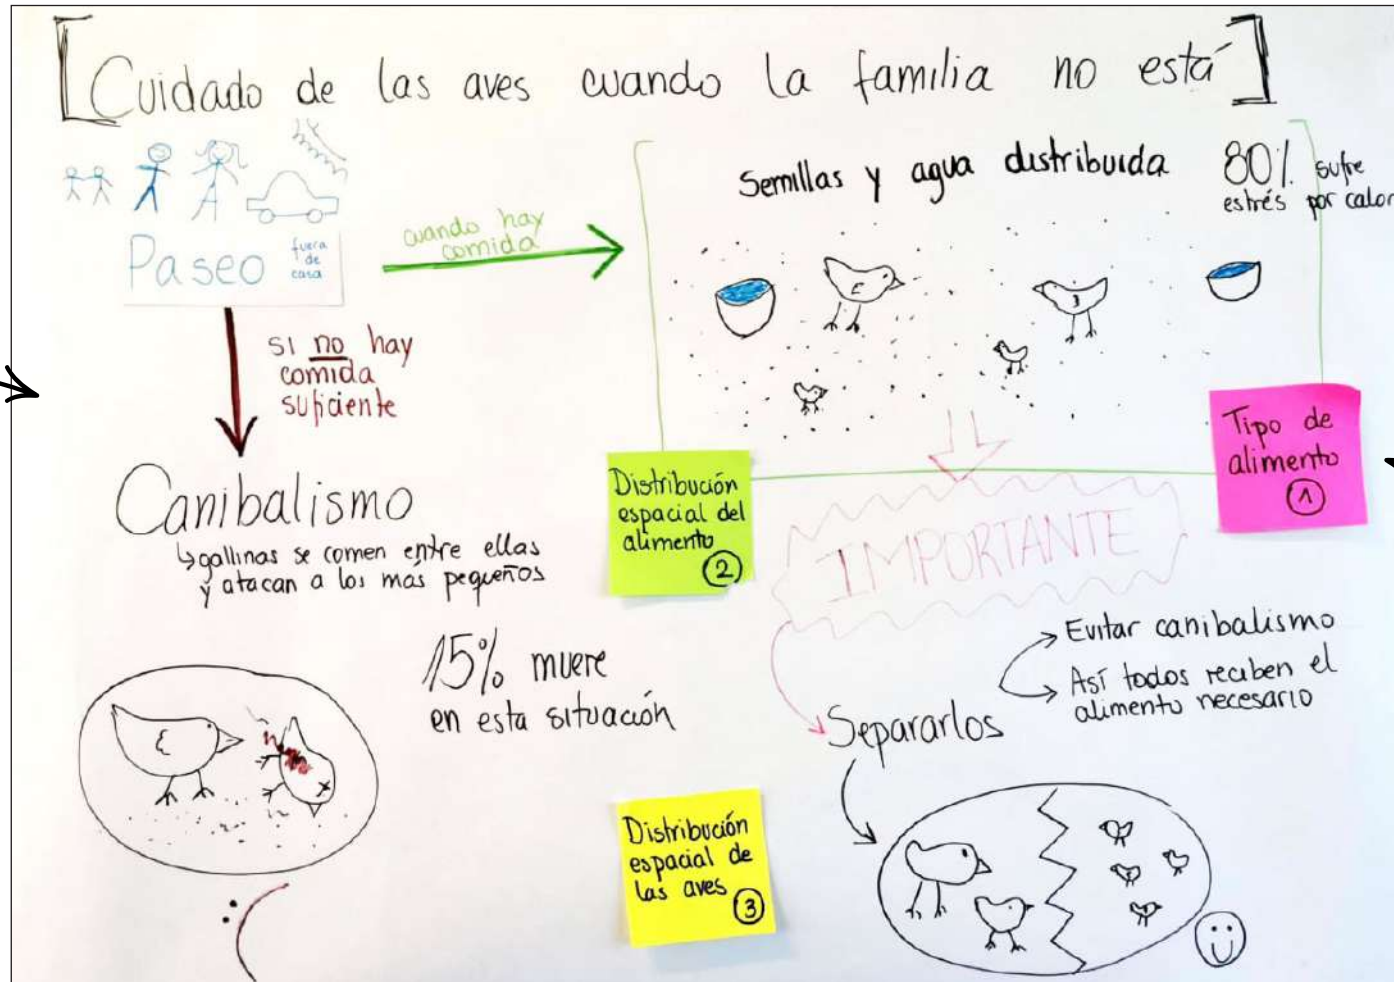 Cuidado de las aves cuando la familia no está
Paseo
fuera
de
casa
cuando hay
comida
Semillas y agua distribuida
80% sufre
estrés por calor
si no hay
comida
suficiente
Tipo de
alimento
1
Canibalismo
gallinas se comen entre ellas
y atacan a los más pequeños
Distribución
espacial del
alimento
2
IMPORTANTE
15% muere
en esta situación
Evitar canibalismo
Así todos reciben el
alimento necesario
Separarlos
Distribución
espacial de
las aves
3